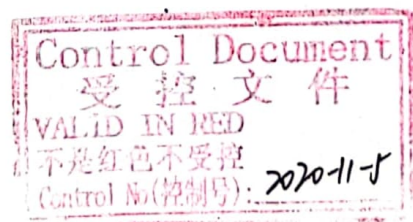 Control Document
受控文件
VALiD IN RED
不是红色不受控
Control No(控制号): 2020-11-5